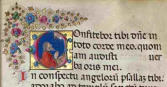 Confitebor tibi dñe in
toto corde meo. quom
iam audisti uer
ba oris mei.
In conspectu angelorũ psallaɜ tibi.